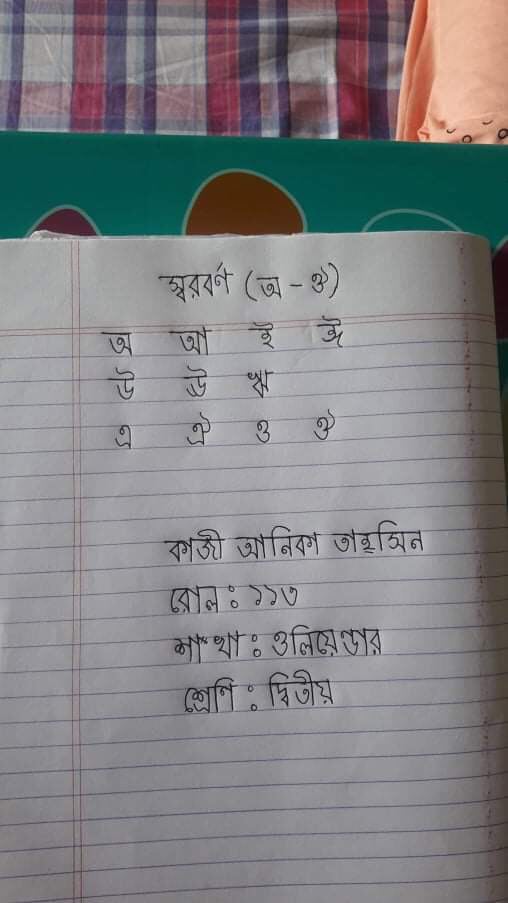 স্বরবর্ণ (অ - ঔ)
অ আ ই ঈ
উ ঊ ঋ
এ ঐ ও ঔ
কাজী আনিকা তাহ্সিন
রোল : ১১৩
শাংখা : ওলিয়েন্ডার
শ্রেণি : দ্বিতীয়